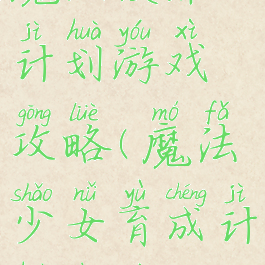 jì huà yóu xì
计划游戏
gōng lüè mó fǎ
攻略(魔法
shǎo nǚ yù chéng jì
少女育成计